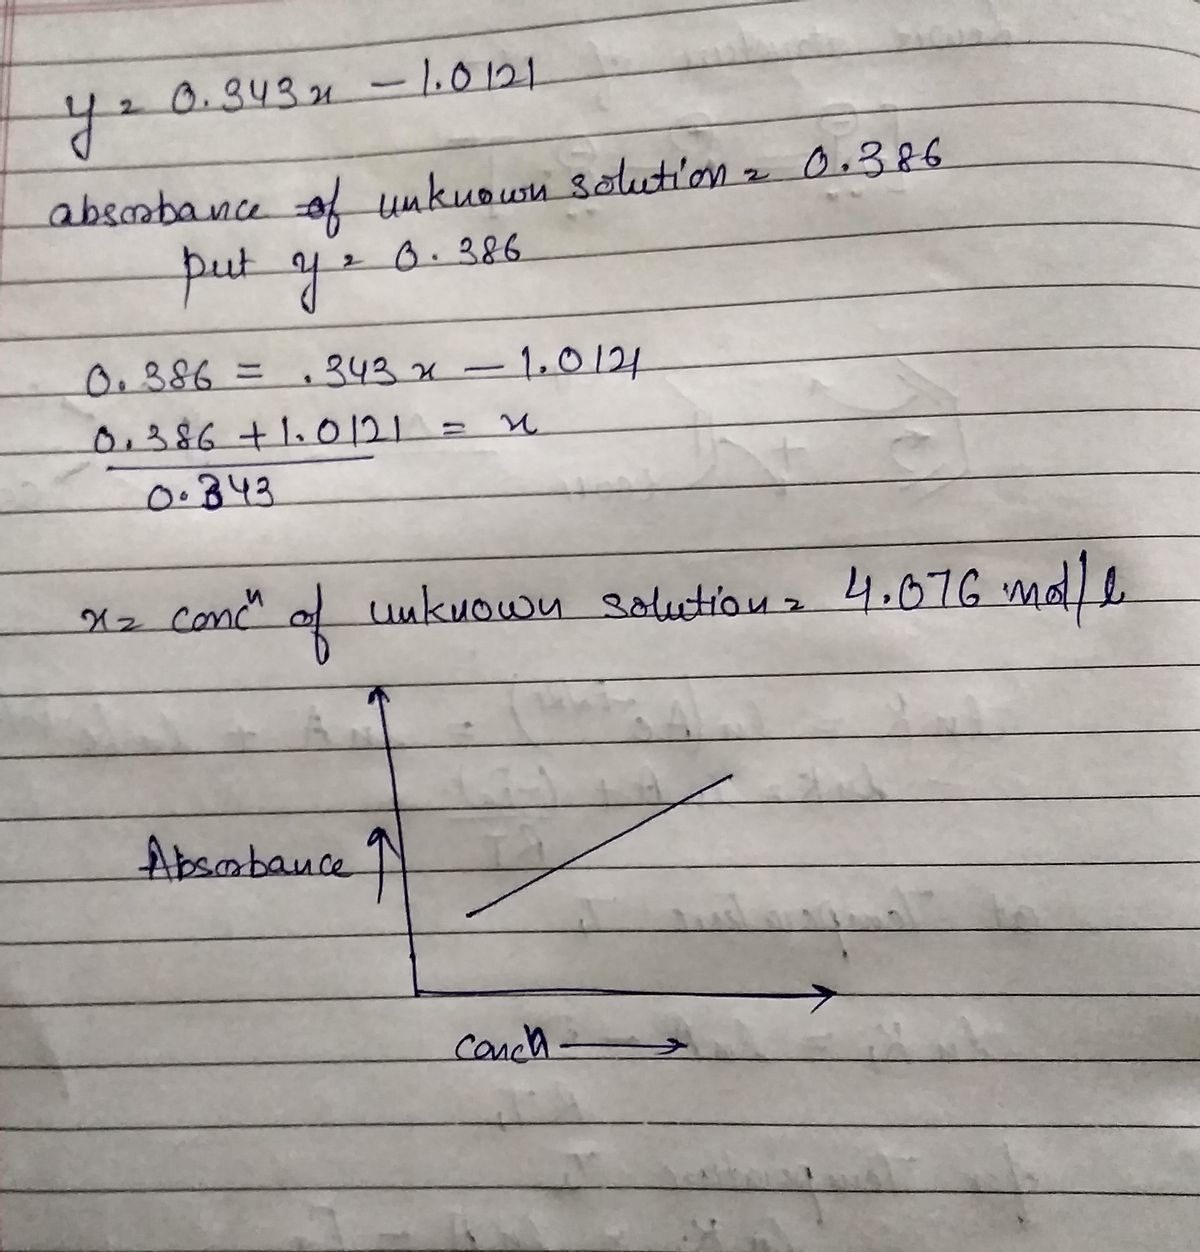 y = 0.343x - 1.0121
absorbance of unknown solution = 0.386
put y = 0.386
0.386 = .343x - 1.0121
0.386 + 1.0121 = x
0.343
x = concⁿ of unknown solution = 4.076 mol/l
Absorbance
concn